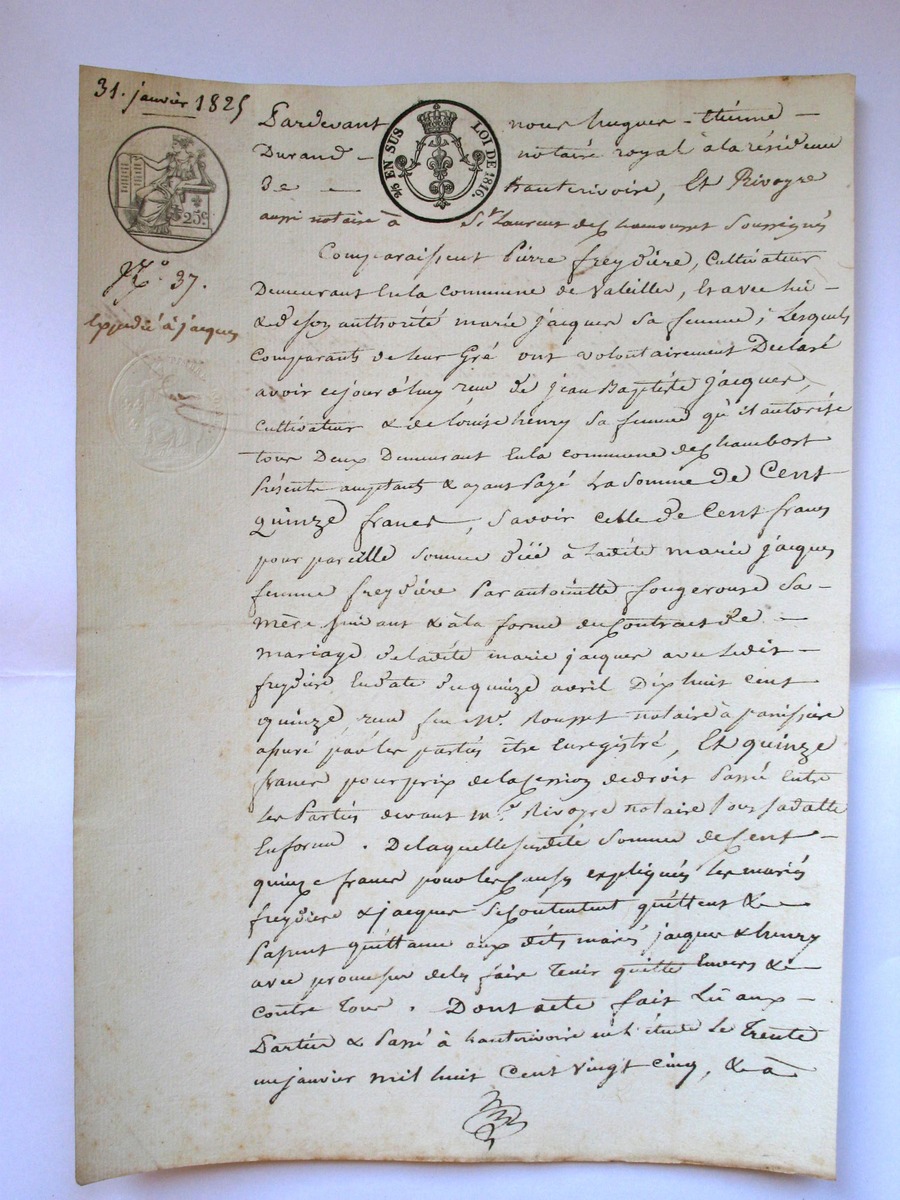 31. janvier 1825
Pardevant nous hugues-étienne
Durand notaire royal à la résidence
de hauterivoire, Et Rivoyre
aussi notaire à St Laurent de chamousset Soussignés
⅖ EN SUS LOI DE 1816.
25c
N.° 37.
Expédié à jacques
Comparaissent Pierre freydière, Cultivateur
Demeurant En la commune de Valeille, Et avec lui
& de son authorité marie jacques sa femme; Lesquels
Comparants de leur Gré ont volontairement Declaré
avoir cejourd'huy reçu de jean Baptiste jacques,
Cultivateur & de Louise henry Sa femme qu'il autorise
tous Deux Demeurant En la commune de chambost
Présents acceptants & ayant Payé La Somme de Cent
quinze francs, Savoir celle de Cent francs
pour pareille Somme à ladite marie jacques
femme freydière Par antoinette fougerouse Sa
mère suivant & à la forme du Contract de
mariage de ladite marie jacques avec ledit
freydière En date du quinze avril Dix huit cent
quinze reçu feu Me. Rousset notaire à panissière
assuré par les parties être Enregistré, Et quinze
francs pour prix de la cession de droit Passé Entre
Les Parties devant Me. Rivoyre notaire Sous sa datte
En forme. De laquelle susdite Somme de Cent
quinze francs pour les Causes expliquées Les mariés
freydière & jacques Se Contentent quittent &
Passent quittance aux dits mariés jacques & henry
avec promesse de les faire Tenir quitte Envers &
contre Tous. Dont acte fait Lû aux
Parties & Passé à hauterivoire en l'étude Le Trente
un janvier mil huit Cent vingt cinq, & à